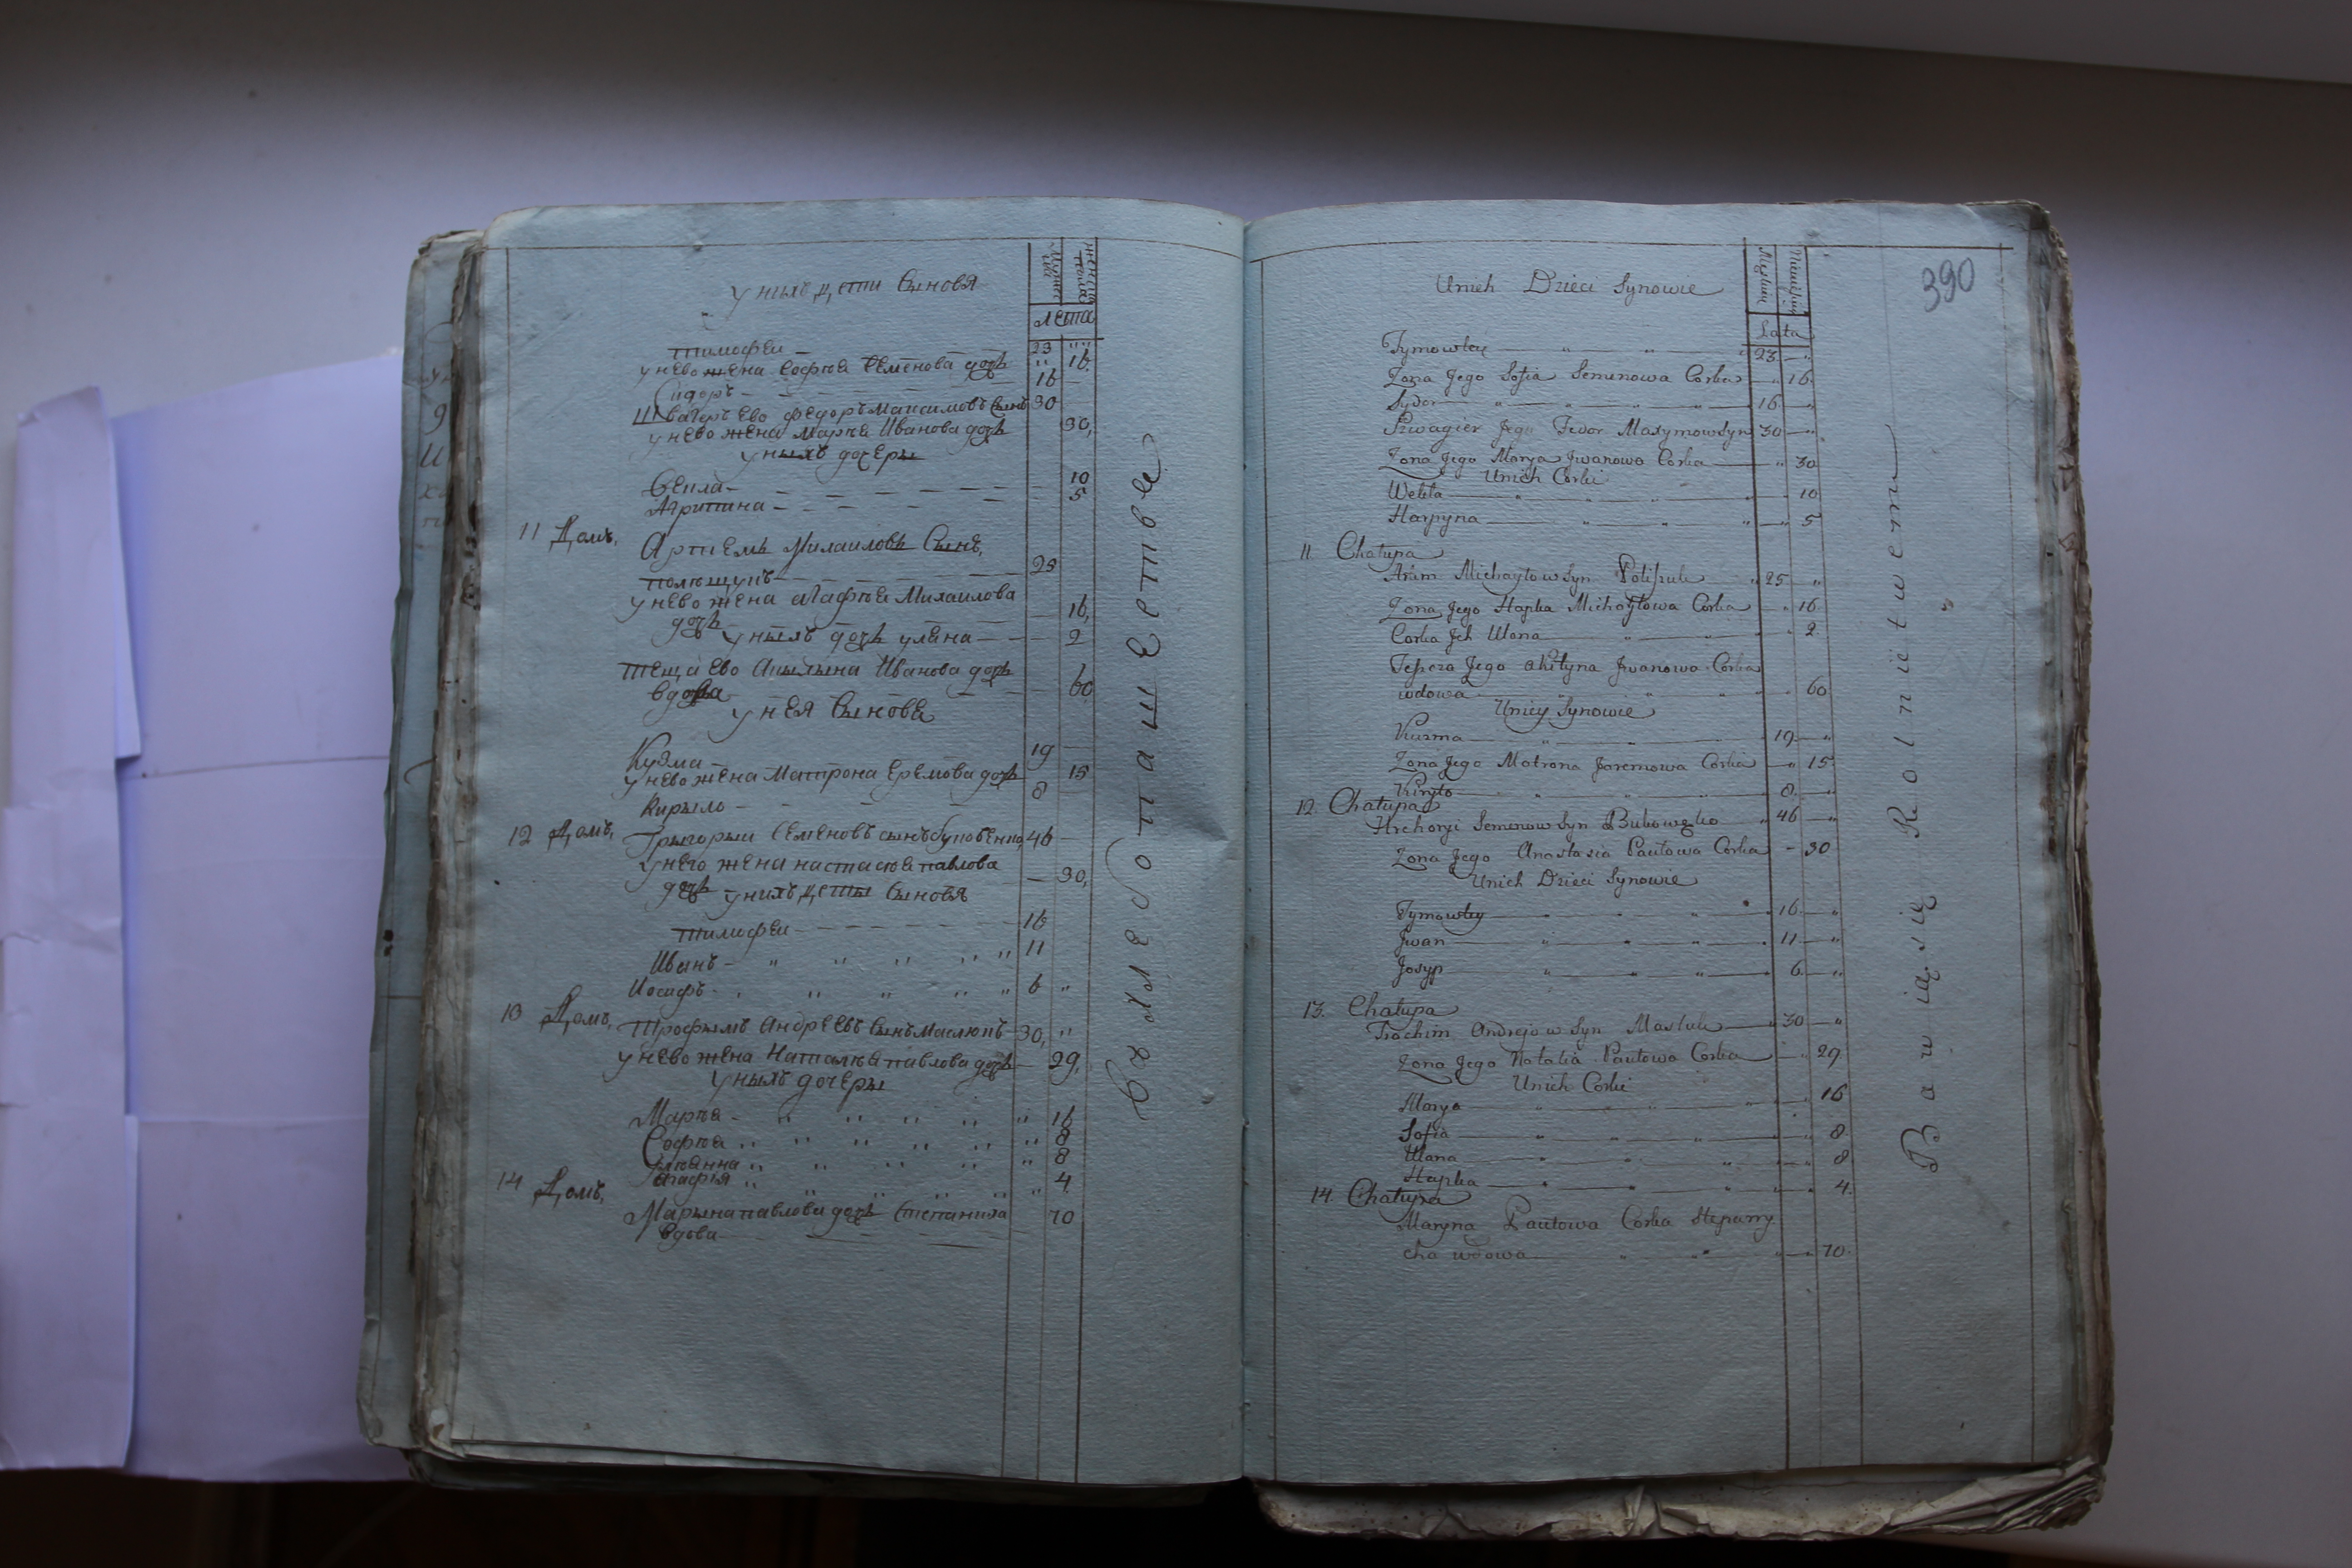 у нихъ дети Сыновя
лета
тимофеи 23
у нево жена Софиа Семенова дочь 16
Сидоръ 16
Швагеръ Ево федоръ Максимовъ Сынъ 30
у нево жена Мариа Иванова дочь 30,
у ныхъ дочеры
Векла 10
Агрипина 5
11 Домъ,
Артемъ Михаиловъ Сынъ,
25
у нево жена Агафиа Михаилова
дочь 16,
у ныхъ дочь уляна 2
теща Ево Акылына Иванова дочь
вдова 60
у нея Сынове
Кузма 19
у нево жена Матрона Еремова дочь 15
Кирыло 8
12 Домъ,
Грыгорыи Семеновъ сынъ 46
у него жена настасиа павлова
дочь 30,
у нихъ деты Сыновя
тимофеи 16
Иванъ 11
Иосифъ 6
13 Домъ,
Трофымъ Андреевъ Сынъ Маслюкъ 30,
у нево жена Наталиа павлова дочь 29,
у ныхъ дочеры
Мариа 16
Софиа 8
улиянна 8
Агафия 4
14 Домъ,
Марына павлова дочь Степаниха 70
вдова
хлебопашествe
390
Unich Dzieci Synowie
Lata
Tymowtey 23
Zona Jego Sofia Semenowa Corka 16
Sydor 16
Szwagier Jego Fedor Maxymow Syn 30
Zona Jego Marya Jwanowa Corka 30
Unich Corki
Wekla 10
Harpyna 5
11. Chałupa
Artim Michayłow Syn Poliszuk 25
Zona Jego Hapka Michayłowa Corka 16
Corka Jch Ulana 2
Teszcza Jego Akilyna Jwanowa Corka
wdowa 60
Uniey Synowie
Kuzma 19
Zona Jego Motrona Jaremowa Corka 15
Kiryło 8
12. Chałupa
Hrehorÿi Semenow Syn 46
Zona Jego Anastasia Pawłowa Corka 30
Unich Dzieci Synowie
Tymowtey 16
Jwan 11
Josyp 6
13. Chałupa
Trochim Andrejow Syn Masluk 30
Zona Jego Natalia Pawłowa Corka 29
Unich Corki
Marya 16
Sofia 8
Ulana 8
Hapka 4
14. Chałupa
Maryna Pawłowa Corka Stepany
cha wdowa 70
Bawią się Rolnictwem